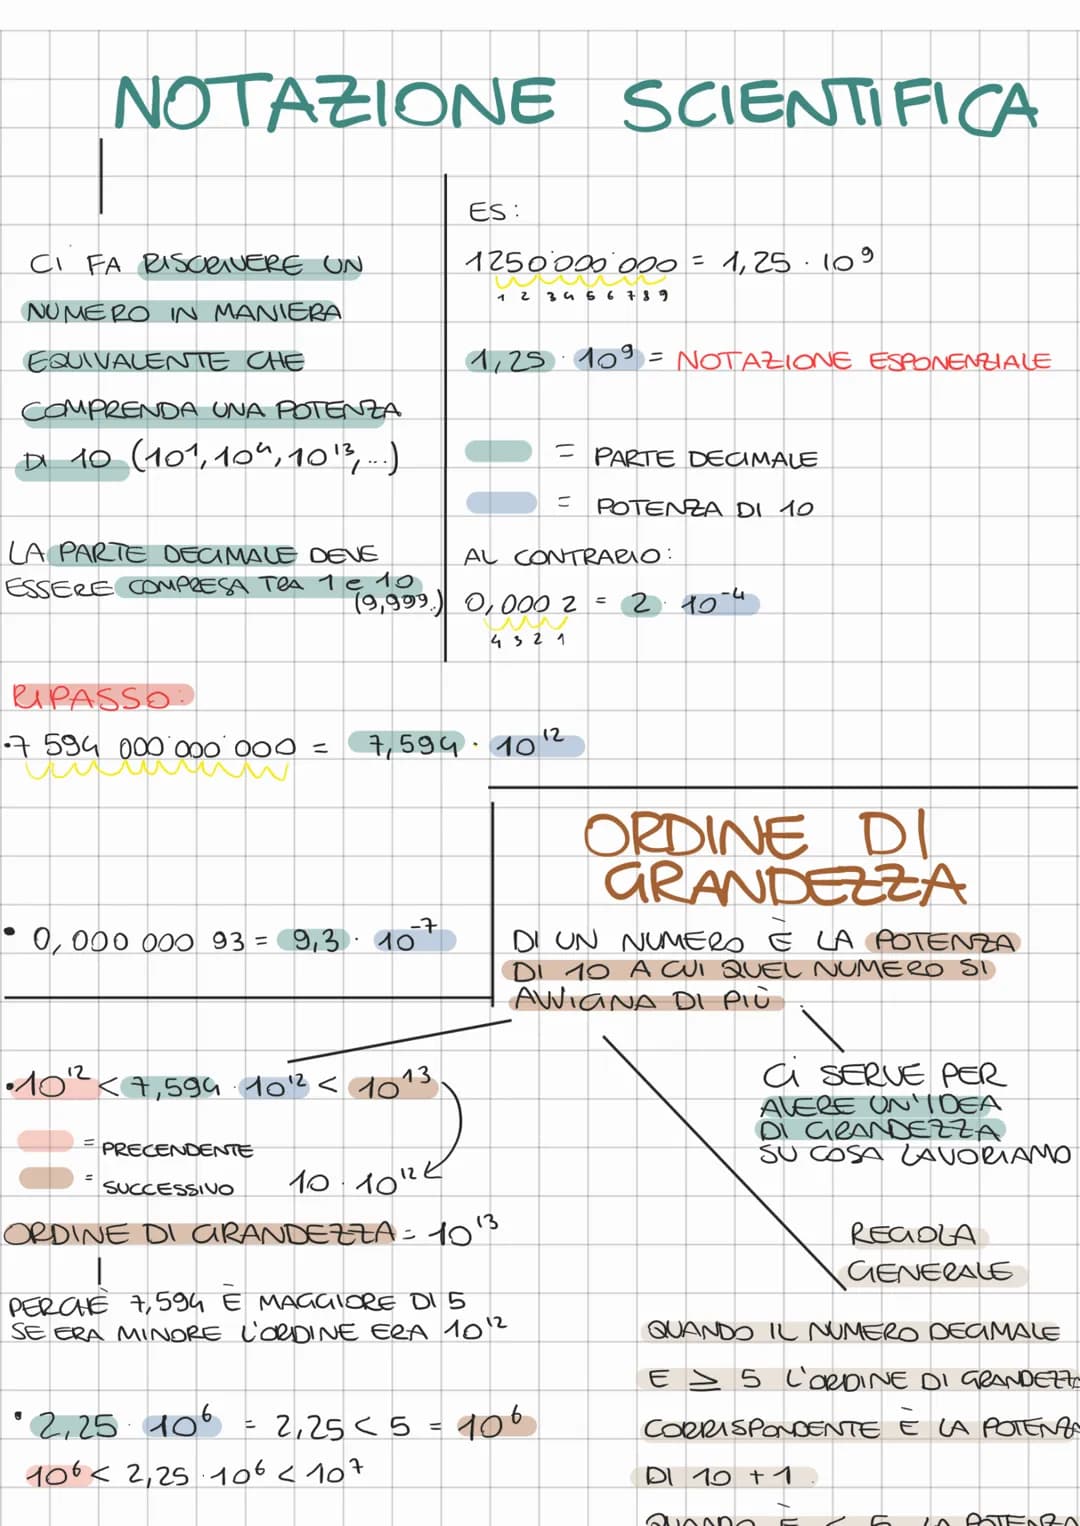 NOTAZIONE SCIENTIFICA
CI FA RISCRIVERE UN
NUMERO IN MANIERA
EQUIVALENTE CHE
COMPRENDA UNA POTENZA
DI 10 (10¹, 10⁴, 10¹³, ...)
LA PARTE DECIMALE DEVE
ESSERE COMPRESA TRA 1 e 10
(9,999..)
ES:
1250˙000˙000 = 1,25 · 10⁹
1 2 3 4 5 6 7 8 9
1,25 · 10⁹ = NOTAZIONE ESPONENZIALE
= PARTE DECIMALE
= POTENZA DI 10
AL CONTRARIO:
0,000 2 = 2 · 10⁻⁴
4 3 2 1
RIPASSO:
• 7 594 000˙000˙000 = 7,594 · 10¹²
• 0,000 000 93 = 9,3 · 10⁻⁷
ORDINE DI
GRANDEZZA
DI UN NUMERO È LA POTENZA
DI 10 A CUI QUEL NUMERO SI
AVVICINA DI PIÙ
• 10¹² < 7,594 · 10¹² < 10¹³
= PRECENDENTE
= SUCCESSIVO 10 · 10¹²
ORDINE DI GRANDEZZA = 10¹³
PERCHÈ 7,594 È MAGGIORE DI 5
SE ERA MINORE L'ORDINE ERA 10¹²
• 2,25 · 10⁶ = 2,25 < 5 = 10⁶
10⁶ < 2,25 · 10⁶ < 10⁷
Ci SERVE PER
AVERE UN'IDEA
DI GRANDEZZA
SU COSA LAVORIAMO
REGOLA
GENERALE
QUANDO IL NUMERO DECIMALE
E ≥ 5 L'ORDINE DI GRANDEZZA
CORRISPONDENTE È LA POTENZA
DI 10 + 1
QUANDO È < 5 LA POTENZA